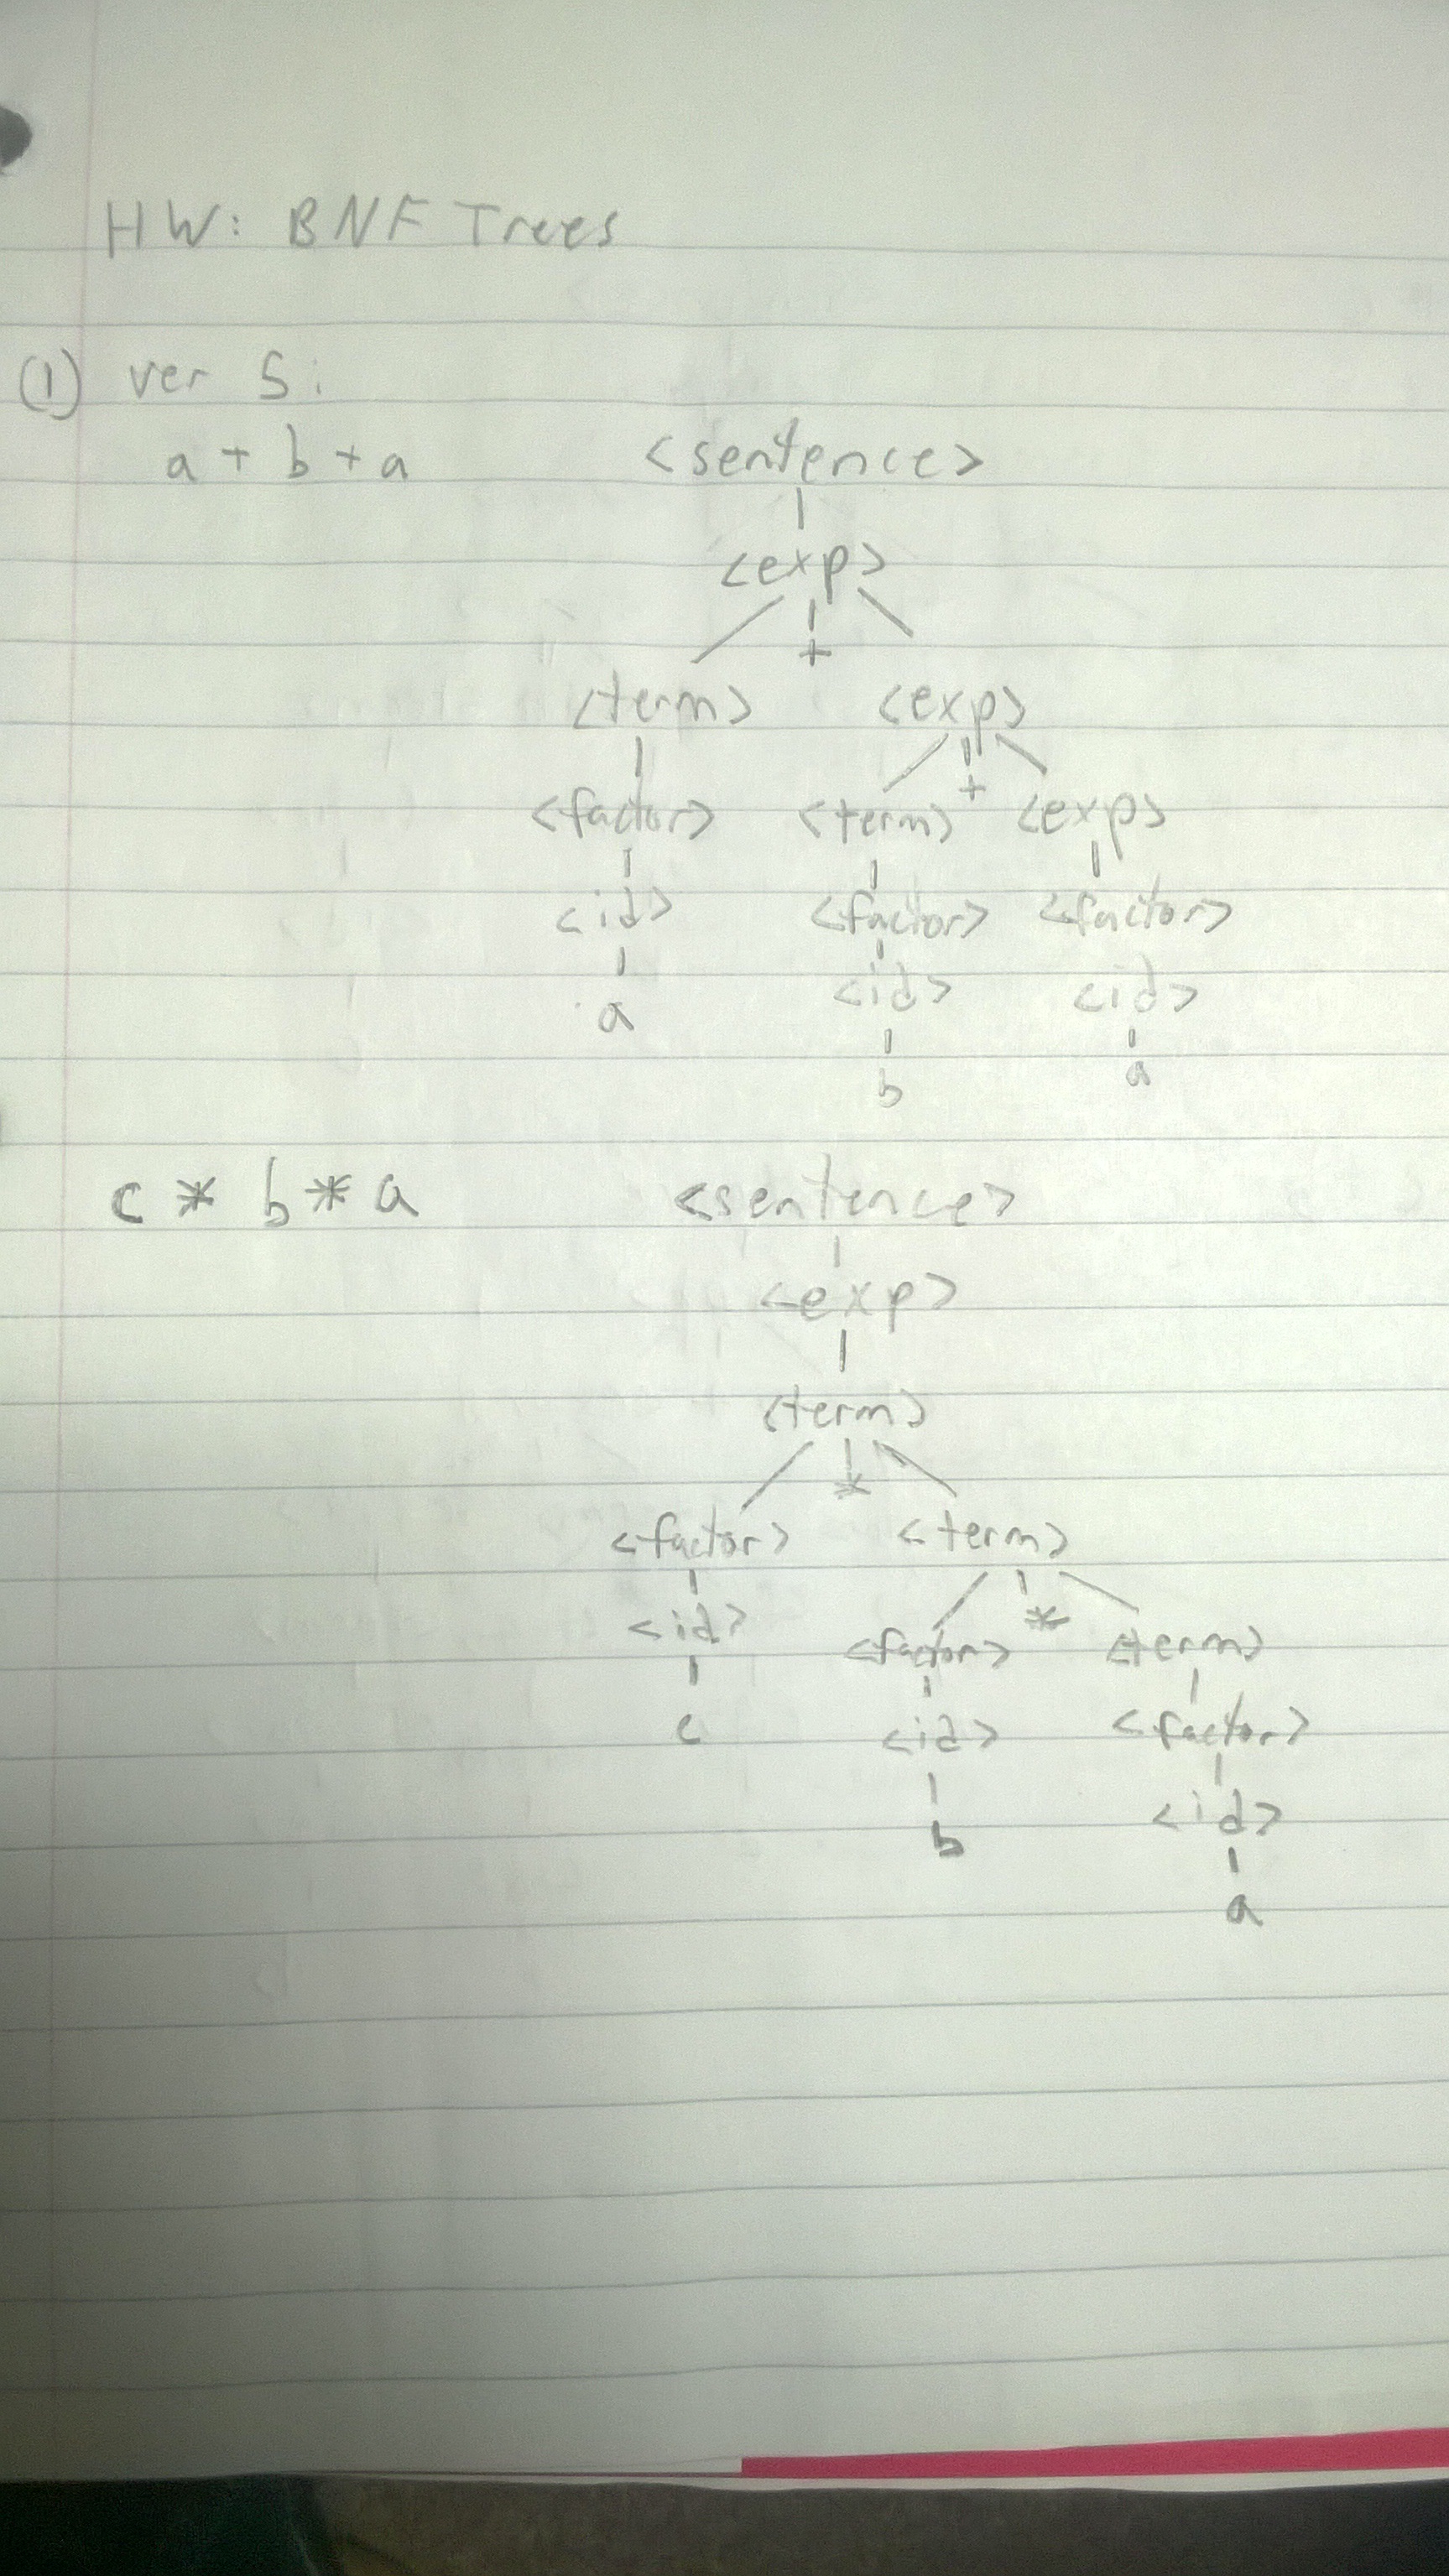 HW: BNF Trees
(1) ver 5:
a + b + a <sentence>
<exp>
+
<term> <exp>
+
<factor> <term> <exp>
<id> <factor> <factor>
a <id> <id>
b a
c * b * a <sentence>
<exp>
<term>
*
<factor> <term>
*
<id> <factor> <term>
c <id> <factor>
b <id>
a